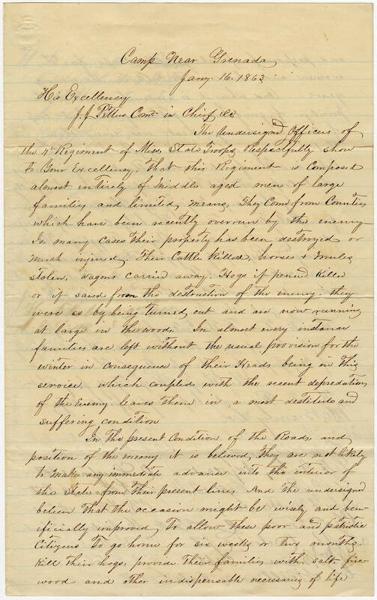 Camp Near Grenada
Jany 16. 1863
His Excellency
J. J. Pettus Com in Chief &c
The undersigned officers of
the 4th Regiment of Miss State Troops, Respectfully show
to Your Excellency, that this Regiment is composed
almost entirely of middle aged men of large
families and limited means, They Come from Counties
which have been recently overrun by the enemy
In many cases their property has been destroyed or
much injured, Their Cattle Killed, horses & mules
stolen, wagons carried away. Hogs if pened Killed
or if saved from the destruction of the enemy: they
were so by being turned out and are now running
at large in the woods. In almost every instance
families are left without the usual provision for the
winter in consequence of their Heads being in this
service which coupled with the recent depredations
of the Enemy leaves them in a most destitute and
suffering condition
In the present condition of the Roads and
position of the enemy it is believed, they are not likely
to make any immediate advance into the interior of
this State from their present lines. And the undersigned
believe that the occasion might be wisely and ben-
eficially improved, to allow these poor and patriotic
Citizens to go home for six weeks or two months
Kill their hogs, provide their families with salt, fire
wood and other indispensable necessaries of life